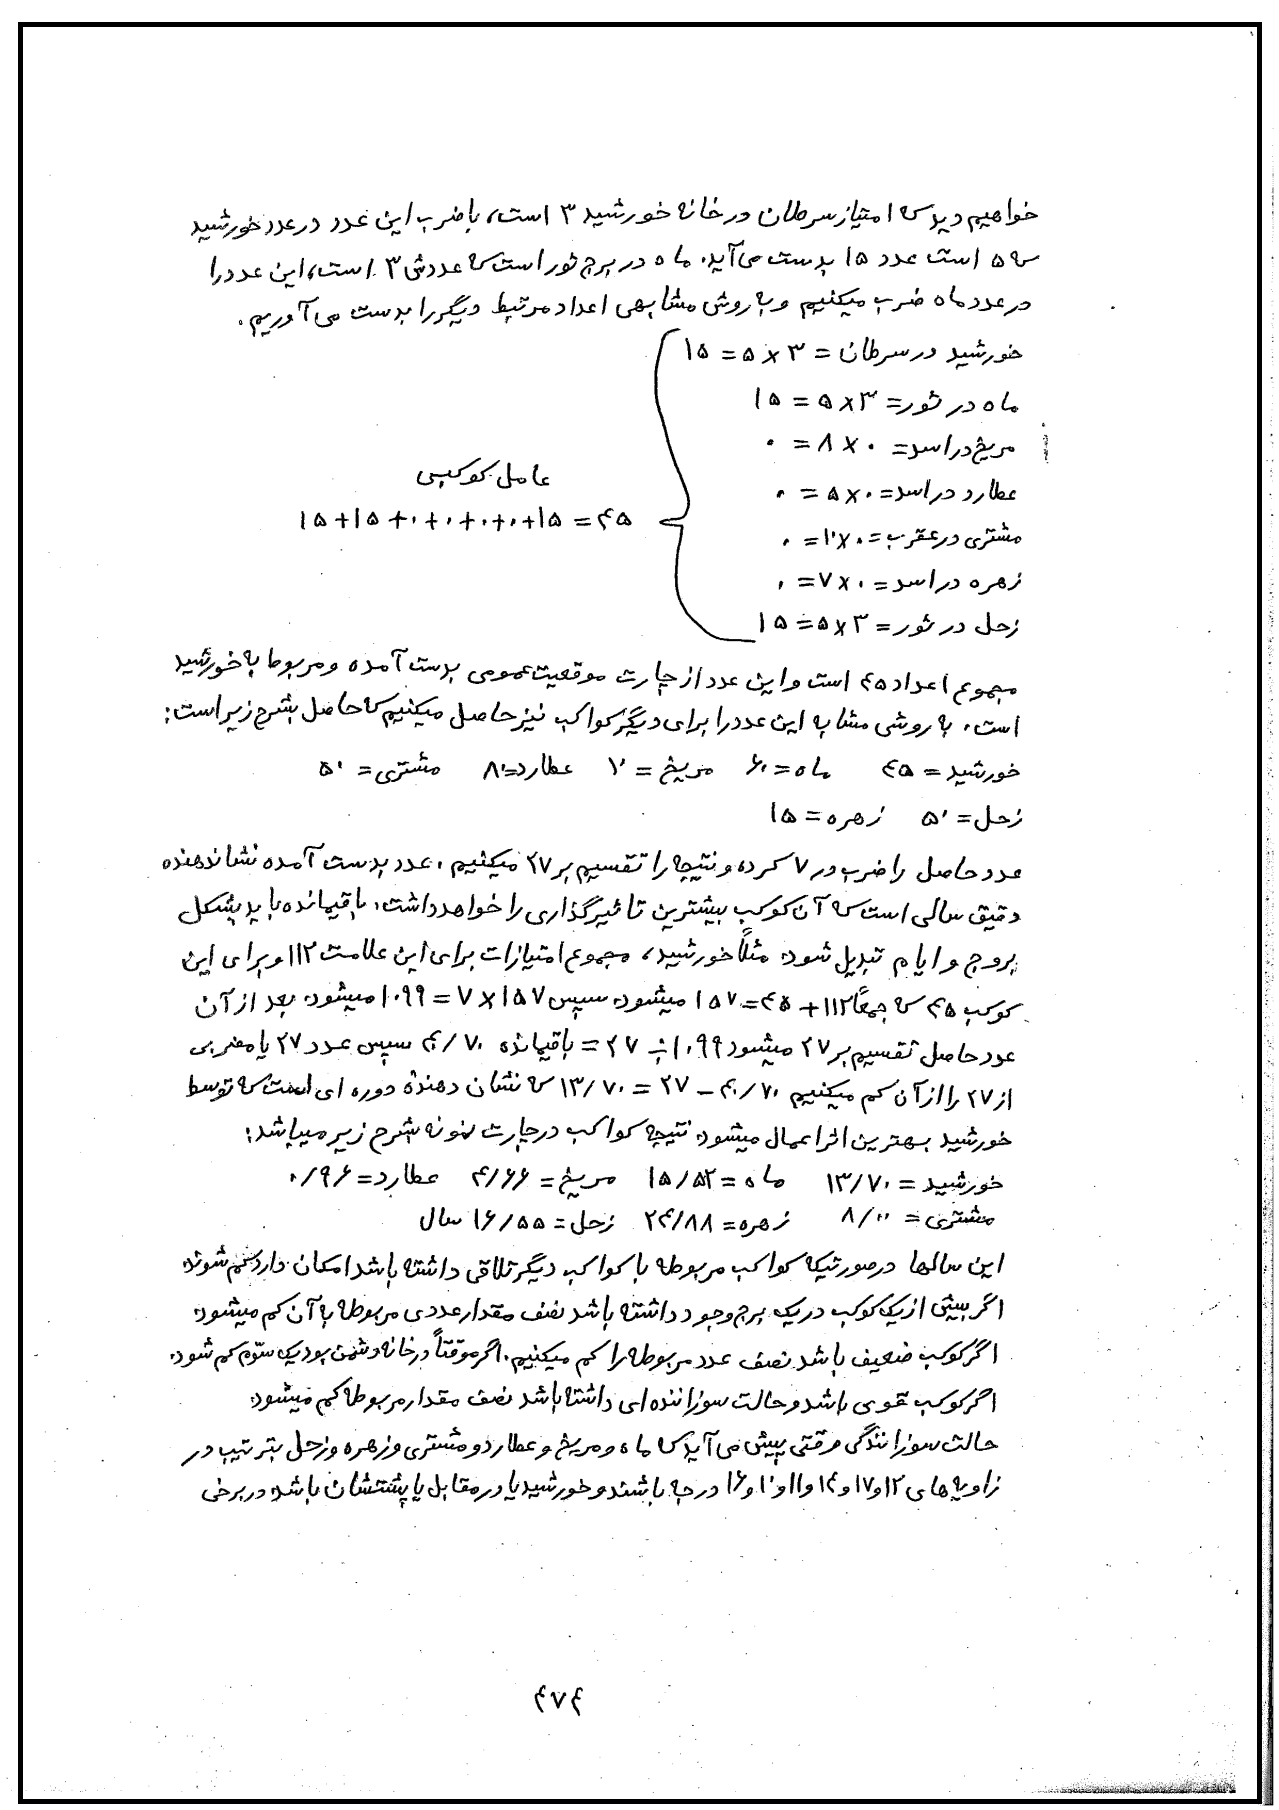 خواهیم دید که امتیاز سرطان در خانه خورشید ۳ است، با ضرب این عدد در عدد خورشید
که ۵ است عدد ۱۵ بدست می‌آید. ماه در برج ثور است که عددش ۳ است، این عدد را
در عدد ماه ضرب میکنیم و به روش مشابهی اعداد مرتبط دیگر را بدست می‌آوریم.
خورشید در سرطان = ۳ × ۵ = ۱۵
ماه در ثور = ۳ × ۵ = ۱۵
مریخ در اسد = ۰ × ۸ = ۰
عطارد در اسد = ۰ × ۵ = ۰
مشتری در عقرب = ۰ × ۱۰ = ۰
زهره در اسد = ۰ × ۷ = ۰
زحل در ثور = ۳ × ۵ = ۱۵
عامل کوکبی
۱۵+۱۵+۰+۰+۰+۰+۱۵=۴۵
مجموع اعداد ۴۵ است و این عدد از چارت موقعیت عمومی بدست آمده و مربوط به خورشید
است. به روشی مشابه این عدد را برای دیگر کواکب نیز حاصل میکنیم که حاصل بشرح زیر است:
خورشید = ۴۵ ماه = ۶۰ مریخ = ۲۰ عطارد = ۸۰ مشتری = ۵۰
زحل = ۵۰ زهره = ۱۵
عدد حاصل را ضرب در ۷ کرده و نتیجه را تقسیم بر ۲۷ میکنیم. عدد بدست آمده نشاندهنده
دقیق سالی است که آن کوکب بیشترین تاثیرگذاری را خواهد داشت. باقیمانده باید بشکل
بروج و ایام تبدیل شود. مثلاً خورشید، مجموع امتیازات برای این علامت ۱۱۲ و برای این
کوکب ۴۵ که جمعاً ۱۱۲ + ۴۵ = ۱۵۷ میشود. سپس ۱۵۷ × ۷ = ۱۰۹۹ میشود. بعد از آن
عدد حاصل تقسیم بر ۲۷ میشود ۱۰۹۹ ÷ ۲۷ = باقیمانده ۴۰/۷۰ سپس عدد ۲۷ یا مضربی
از ۲۷ را از آن کم میکنیم ۴۰/۷۰ - ۲۷ = ۱۳/۷۰ که نشان دهندهٔ دوره ای است که توسط
خورشید بهترین اثر اعمال میشود. نتیجه کواکب در چارت نمونه بشرح زیر میباشد:
خورشید = ۱۳/۷۰ ماه = ۱۵/۵۲ مریخ = ۴/۶۶ عطارد = ۰/۹۶
مشتری = ۸/۰۰ زهره = ۲۴/۸۸ زحل = ۱۶/۵۵ سال
این سالها در صورتیکه کواکب مربوطه با کواکب دیگر تلاقی داشته باشد امکان دارد کم شوند.
اگر بیش از یک کوکب در یک برج وجود داشته باشد نصف مقدار عددی مربوطه به آن کم میشود.
اگر کوکب ضعیف باشد نصف عدد مربوطه را کم میکنیم. اگر موقتاً در خانه دشمن بود یک سوّم کم شود.
اگر کوکب قوی باشد و حالت سوزاننده ای داشته باشد نصف مقدار مربوطه کم میشود.
حالت سوزانندگی وقتی پیش می‌آید که ماه و مریخ و عطارد و مشتری و زهره و زحل بترتیب در
زاویه‌های ۱۲ و ۱۷ و ۱۴ و ۱۱ و ۱۰ و ۱۶ درجه باشند و خورشید یا در مقابل یا پشتشان باشد. در برخی
۴۷۴